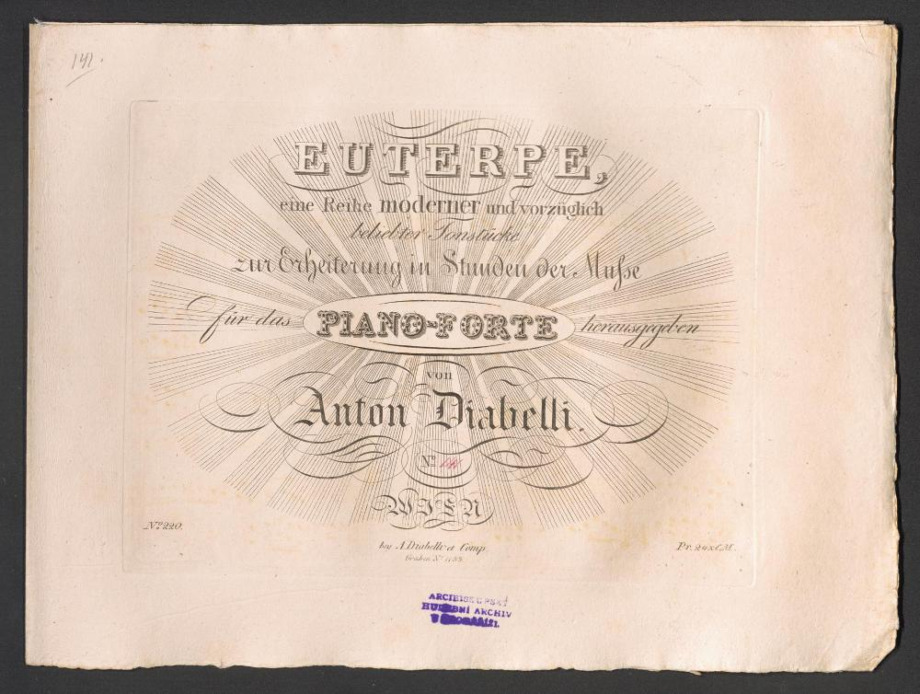 EUTERPE,
eine Reihe moderner und vorzüglich
beliebter Tonstücke
zur Erheiterung in Stunden der Musse
für das PIANO-FORTE herausgegeben
von
Anton Diabelli.
Nº
WIEN
Nº 220.
bey A. Diabelli et Comp.
Graben Nº 1133.
Pr. C.M.
HUDEBNÍ ARCHIV